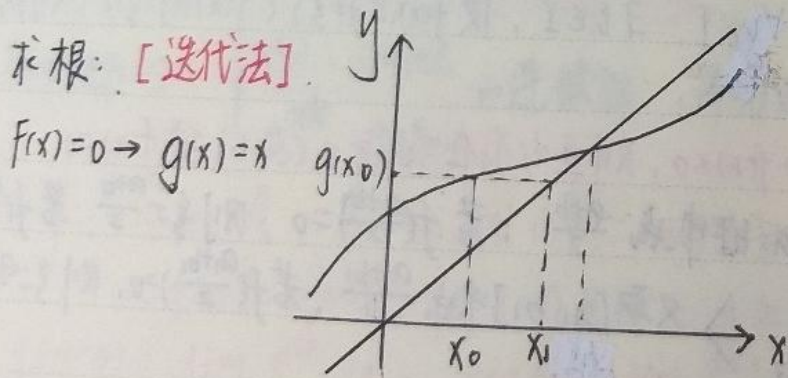 求根: [迭代法]. y
f(x)=0→ g(x)=x g(x₀)
x₀ x₁ x